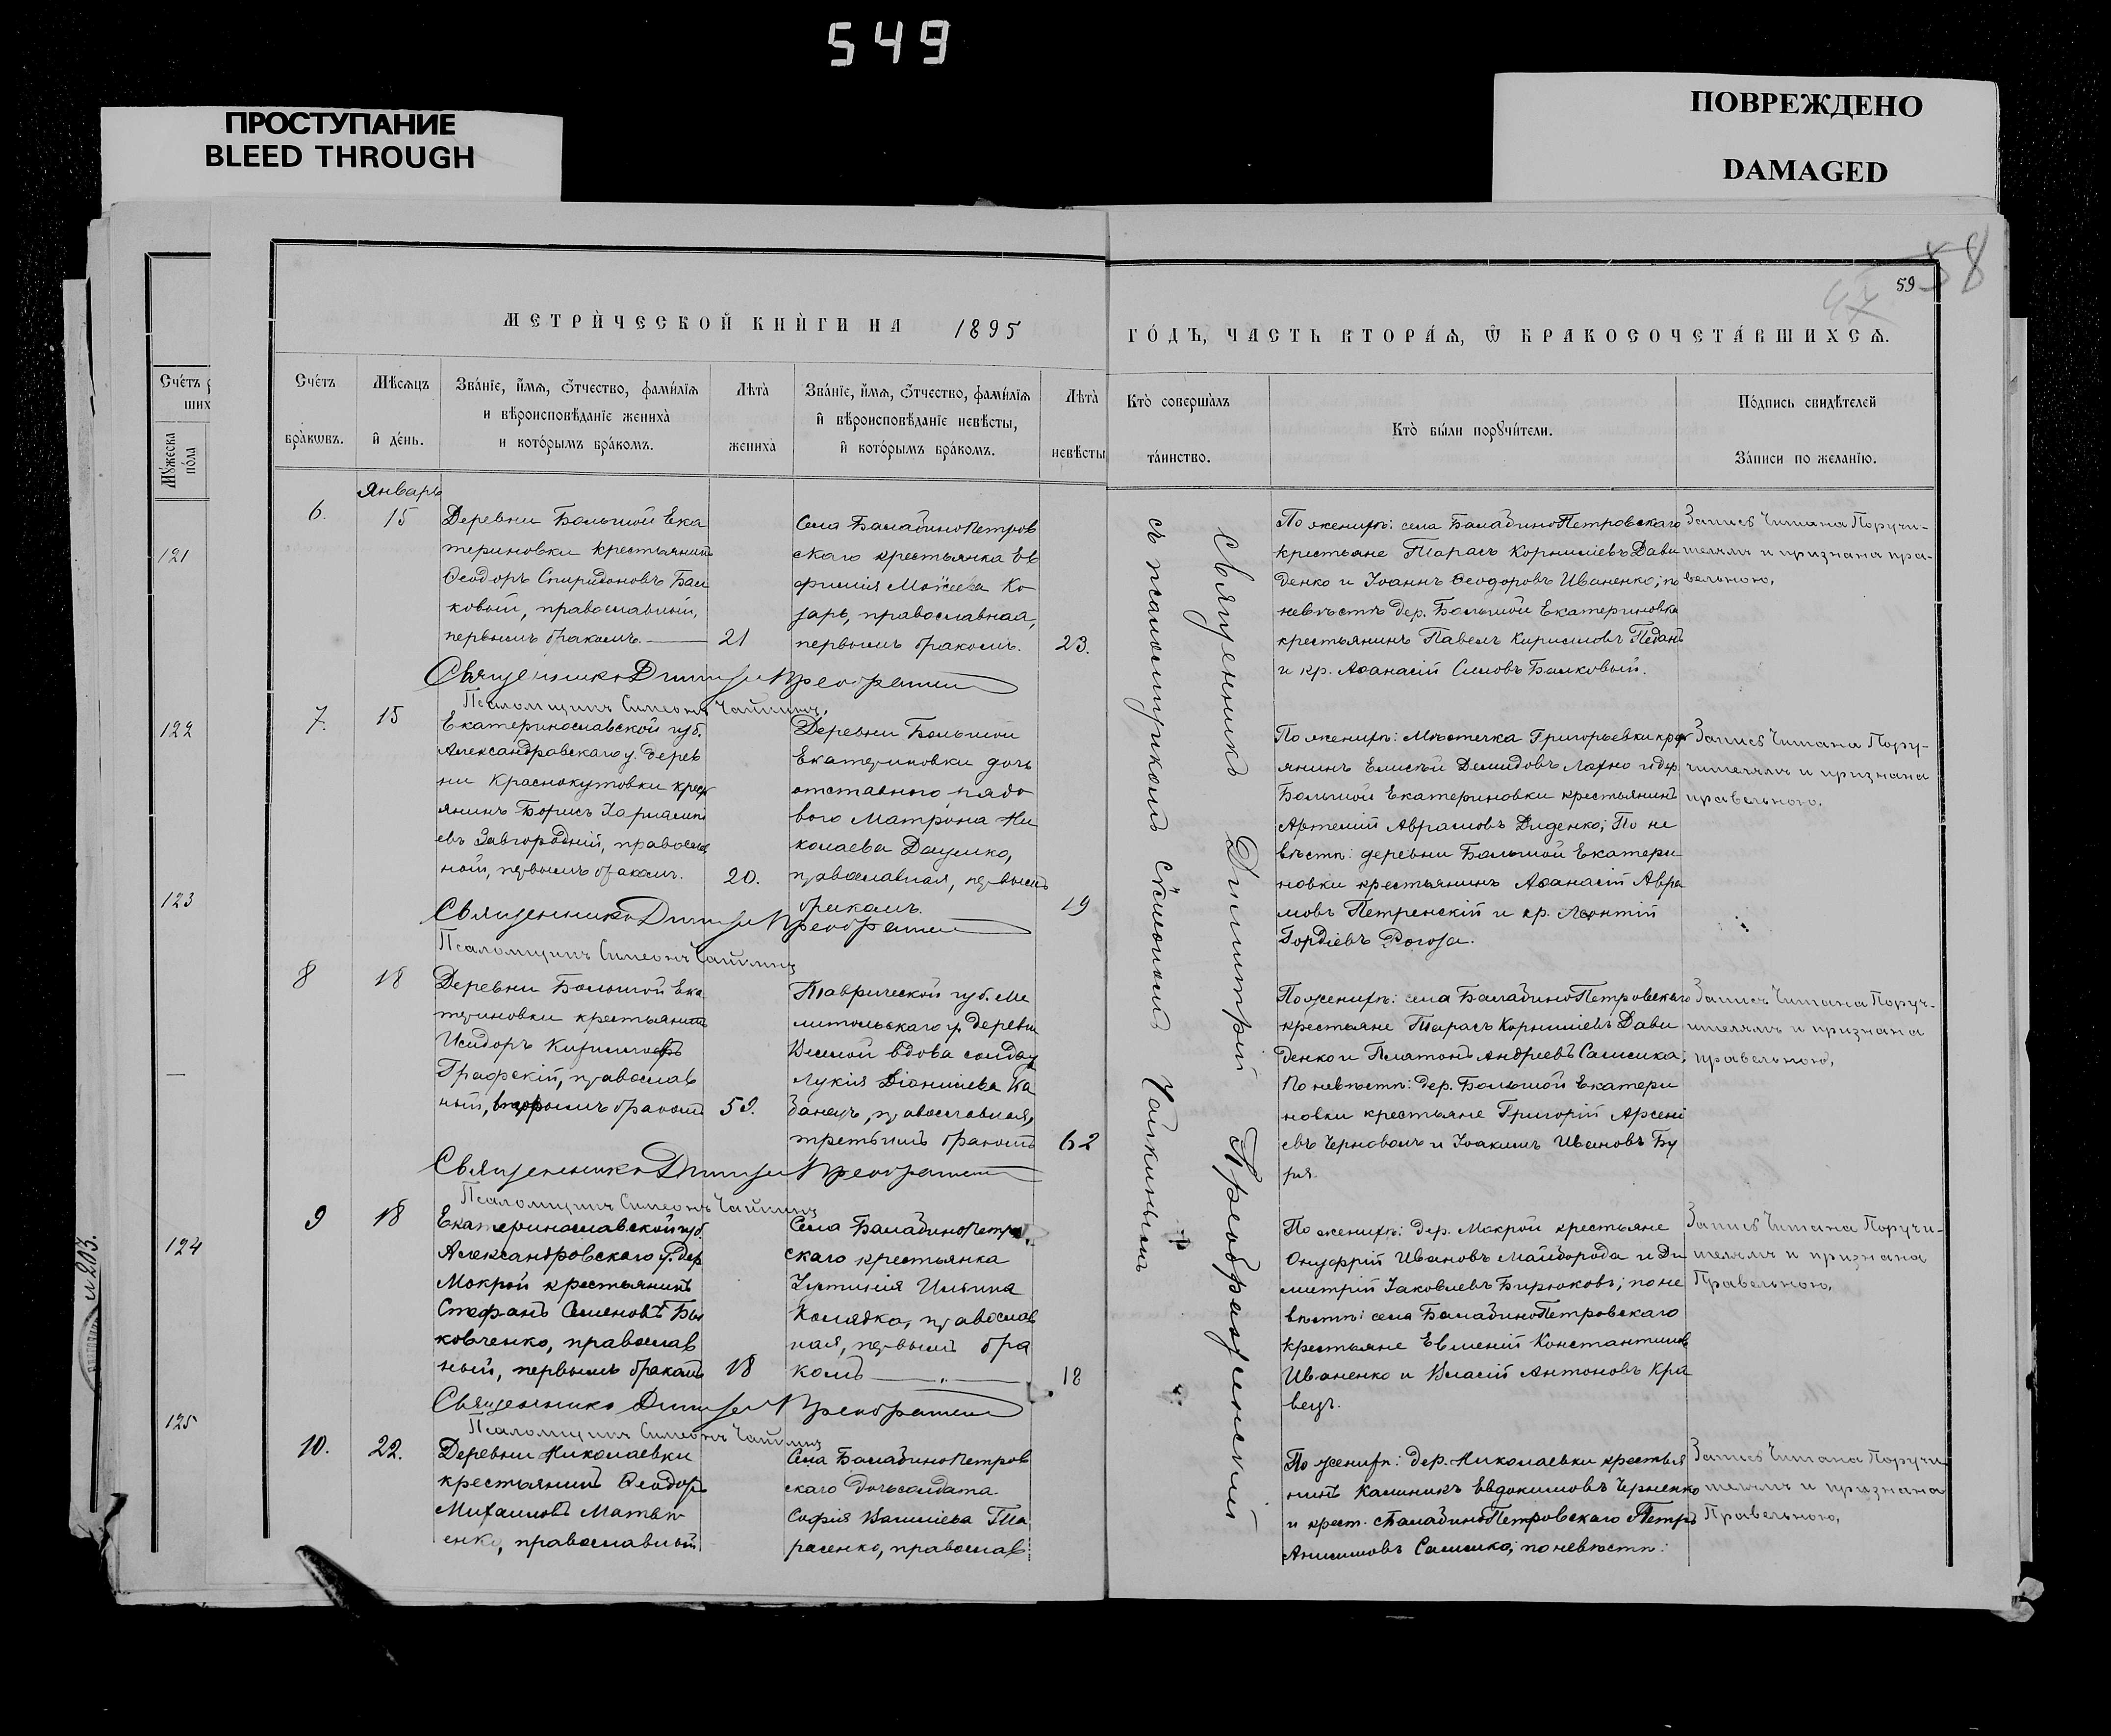 549
ПРОСТУПАНИЕ
BLEED THROUGH
ПОВРЕЖДЕНО
DAMAGED
58
59
МЕТРИ́ЧЕСКОЙ КНИ́ГИ НА 1895
ГО́ДЪ, ЧАСТЬ ВТОРА́Ѧ, Ѿ БРАКОСОЧЕТА́ВШИХСѦ.
Сче́тъ
ших
Мꙋ́жеска
по́ла
121
122
123
—
124
125
Сче́тъ
бра́кѡвъ.
Мѣ́сѧцъ
и҆ де́нь.
Зва́нїе, и҆́мѧ, ѻ҆́тчество, фами́лїѧ
и вѣроисповѣ́данїе жениха̀
и кото́рымъ бра́комъ.
Лѣ́та̀
жениха̀
Зва́нїе, и҆́мѧ, ѻ҆́тчество, фами́лїѧ
и҆ вѣроисповѣ́данїе невѣ́сты,
и҆ кото́рымъ бра́комъ.
Лѣ́та̀
невѣ́сты
Кто̀ соверша́лъ
та́инство.
Кто̀ бы́ли порꙋчи́тели.
По́дпись свидѣ́телей
За́писи по жела́нїю.
6.
Январь
15
Деревни Большой Ека
териновки крестьянинъ
Ѳеодоръ Спиридоновъ Бал
ковый, православный,
первымъ бракомъ.
21
Села БалабиноПетров
скаго крестьянка Ев
фимія Моисеева Ко
зарь, православная,
первымъ бракомъ.
23.
По женихѣ: села БалабиноПетровскаго
крестьяне Тарасъ Корниліевъ Дави
денко и Іоаннъ Ѳеодоровъ Иваненко; по
невѣстѣ дер. Большой Екатериновки
крестьянинъ Павелъ Кирилловъ Педанъ
и кр. Аѳанасій Симовъ Балковый.
Запись Читана Поручи-
телямъ и признана пра-
вельною.
Священникъ Димитрій Преображенскій
Псаломщикъ Симеонъ Чайкинъ
7.
15
Екатеринославской губ.
Александровскаго у. дерев
ни Краснокутовки крест
янинъ Борисъ Харлампі
евъ Завгородній, православ
ный, первымъ бракомъ.
20.
Деревни Большой
Екатериновки дочь
отставного рядо
вого Матрона Ни
колаева Даценко,
православная, первымъ
бракомъ.
19
По женихѣ: Мѣстечка Григорьевки крест
янинъ Елисѣй Демидовъ Лахно и дер.
Большой Екатериновки крестьянинъ
Артемій Аврамовъ Диденко; По не
вѣстѣ: деревни Большой Екатери
новки крестьянинъ Аѳанасій Авра
мовъ Петренскій и кр. Леонтій
Гордіевъ Рогоза.
Запись Читана Пору-
чителямъ и признана
правельною.
Священникъ Димитрій Преображенскій
Псаломщикъ Симеонъ Чайкинъ
8
18
Деревни Большой Ека
териновки крестьянинъ
Исидоръ Кирилловъ
Графскій, православ
ный, вторымъ бракомъ
59.
Таврической губ. Ме
литопольскаго у. деревни
Веселой вдова солдат
Лукія Діонисіева Ка
занецъ, православная,
третьимъ бракомъ
62
По женихѣ: села БалабиноПетровскаго
крестьяне Тарасъ Корниліевъ Дави
денко и Платонъ Андреевъ Самсика;
По невѣстѣ: дер. Большой Екатери
новки крестьяне Григорій Арсені
евъ Черноволъ и Іоакимъ Ивановъ Бу
ря.
Запись Читана Поруч-
ителямъ и признана
правельною,
Священникъ Димитрій Преображенскій
Псаломщикъ Симеонъ Чайкинъ
9
18
Екатеринославской губ.
Александровскаго у. дер
Мокрой крестьянинъ
Стефанъ Семеновъ Бы
ковченко, православ
ный, первымъ бракомъ
18
Села БалабиноПетров
скаго крестьянка
Іустинія Ильина
Колядка, православ
ная, первымъ бра
комъ
18
По женихѣ: дер. Мокрой крестьяне
Онуфрій Ивановъ Майборода и Ди
митрій Іаковлевъ Бирюковъ; по не
вѣстѣ: села БалабиноПетровскаго
крестьяне Евменій Константинов
Иваненко и Власій Антоновъ Кра
вецъ.
Запись Читана Поручи-
телямъ и признана
Правельною,
Священникъ Димитрій Преображенскій
Псаломщикъ Симеонъ Чайкинъ
10.
22.
Деревни Николаевки
крестьянинъ Ѳеодоръ
Михаиловъ Матвѣ
енко, православный
Села БалабиноПетров
скаго дочь солдата
Софія Василіева Та
расенко, православ
По женихѣ: дер. Николаевки крестья
нинъ Калиникъ Евдокимовъ Черненко
и крест. с. БалабиноПетровскаго Петръ
Анисимовъ Самсика; по невѣстѣ:
Запись Читана Поручи
телямъ и признана
Правельною,
Священникъ Димитрій Преображенскій
съ псаломщикомъ Сѵмеономъ Чайкинымъ